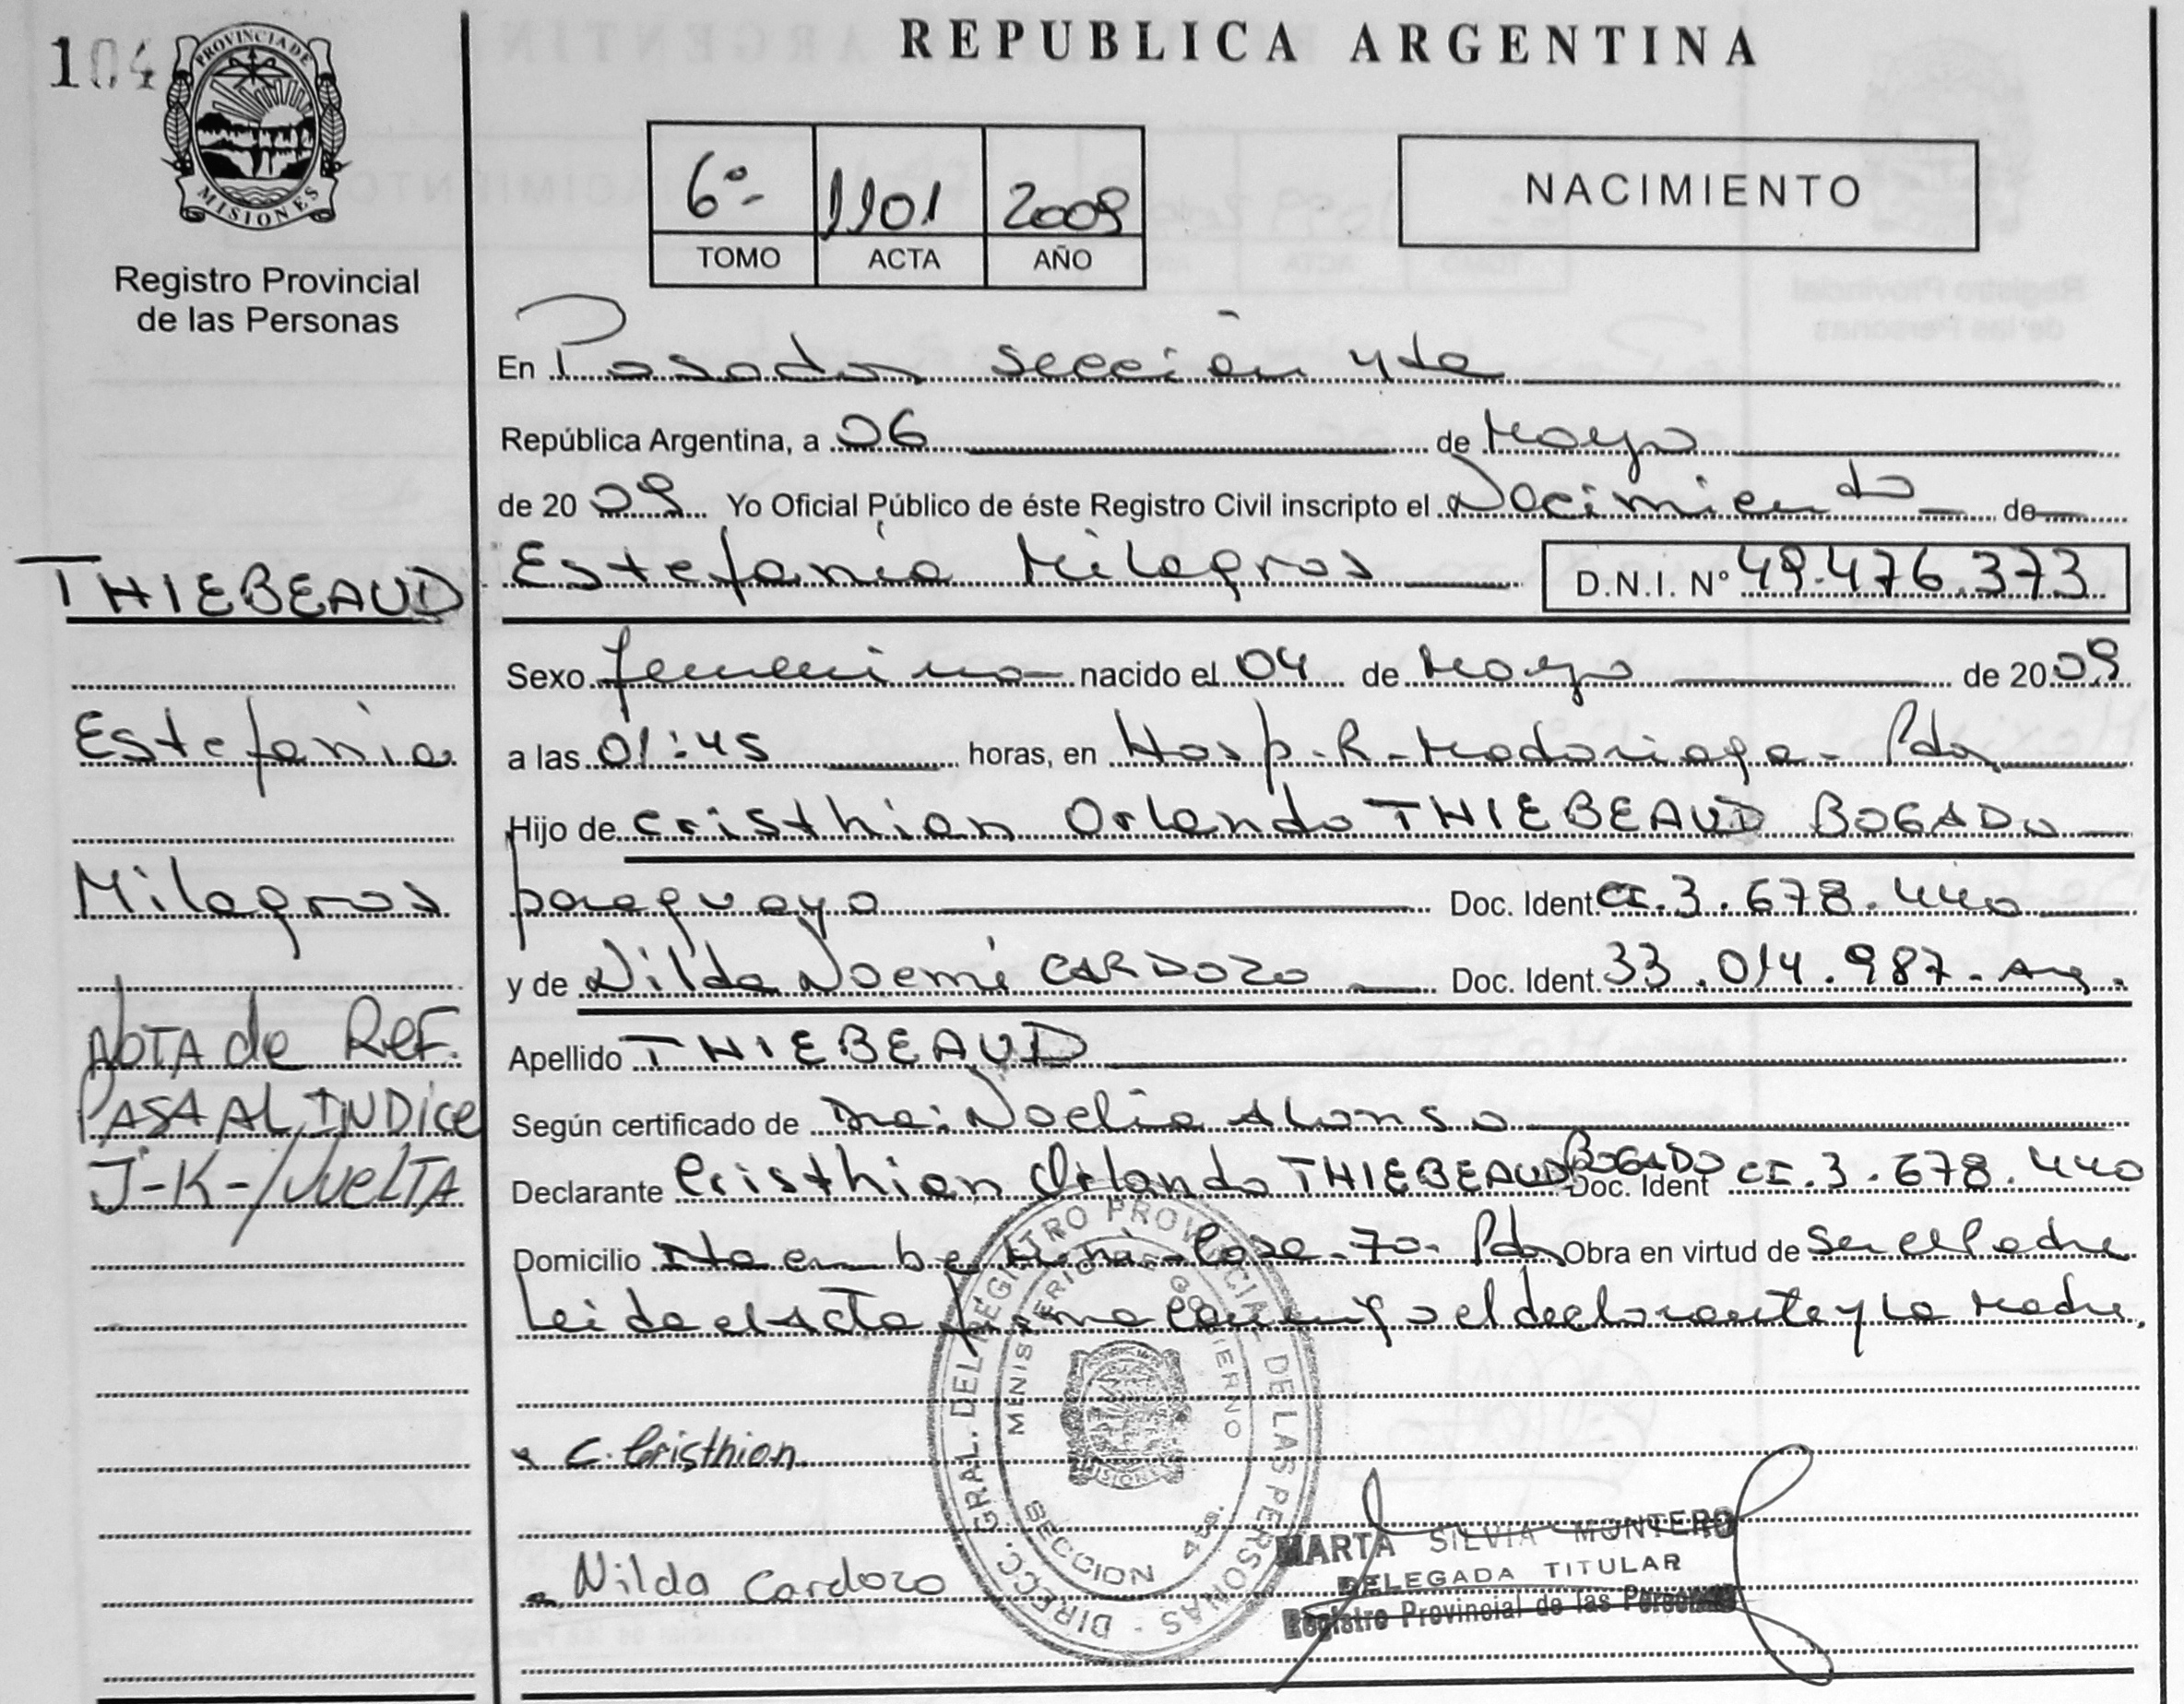 104
PROVINCIA DE
MISIONES
Registro Provincial
de las Personas
REPUBLICA ARGENTINA
6º- 1101 2009
TOMO ACTA AÑO
NACIMIENTO
En Posadas sección 4ta
República Argentina, a 06 de Mayo
de 2009 Yo Oficial Público de éste Registro Civil inscripto el Nacimiento de
THIEBEAUD
Estefania Milagros D.N.I. Nº 49.476.373
Sexo femenino nacido el 04 de Mayo de 2009
Estefania
a las 01:45 horas, en Hosp. R. Madariaga - Pdas
Hijo de Cristhian Orlando THIEBEAUD BOGADO
Milagros
paraguayo Doc. Ident. CI. 3.678.440
y de Nilda Noemi CARDOZO Doc. Ident. 33.014.987 - Arg.
NOTA de ReF.
PASA AL INDice
J-K-/VueLTA
Apellido THIEBEAUD
Según certificado de Dra: Noelia Alonso
Declarante Cristhian Orlando THIEBEAUD BOGADO Doc. Ident CI. 3.678.440
Domicilio Itaembe Mini - Casa - 70 - Pdas Obra en virtud de ser el Padre
Leida el Acta firma conmigo el declarante y la Madre.
DIRECC. GRAL. DEL REGISTRO PROVINCIAL DE LAS PERSONAS -
MINISTERIO DE GOBIERNO
SECCION 4ta.
MISIONES
x C. Cristhian.
Nilda Cardozo
MARTA SILVIA MONTERO
DELEGADA TITULAR
Registro Provincial de las Personas